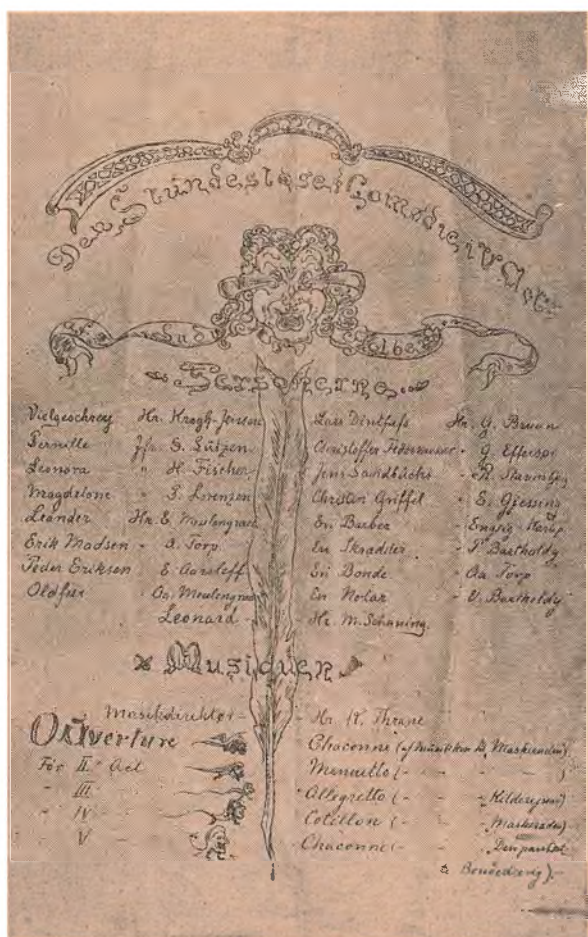 Den Stundesløse: Comødie i V Act
af Lud Holbe
Personerne
Vielgeschrey Hr. Krogh-Jensen
Pernille Jfr. S. Lützen
Leonora " H. Fischer
Magdelone "
Leander Hr. E. Moulengracht
Erik Madsen - A. Torp
Peder Eriksen E. Aarsleff
Oldfux Aa. Moulengracht
Leonard - Hr. M. Schuning
Lars Dintfass Hr. G. Bruun
Christoffer Federmesser - G.
Jens Sandbüchs -
Christen Griffel - E. Gjessing
En Barber -
En Skrædder - P. Bartholdy
En Bonde - Aa Torp
En Notar - V. Bartholdy
Musiquen
Musikdirektør - - Hr. K. Thrane
Ouverture
För II. Act
- III -
- IV -
- V -
Chaconne (af Musikken til Maskeraden)
Menuetto ( - - - )
Allegretto ( - - Kilderejsen)
Cotillon ( - - Maskeraden)
Chaconne ( - - Den pantsat-
te Bondedreng).